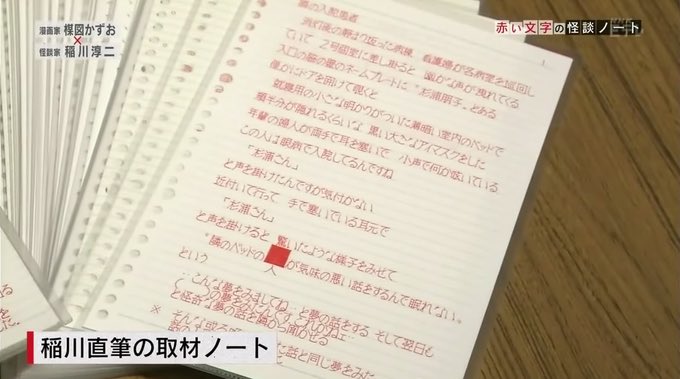 漫画家 楳図かずお
×
怪談家 稲川淳二
赤い文字の怪談ノート
1
隣の入院患者
消灯後の静まり返った病棟、看護婦が各病室を巡回し
ていて 2号個室に差し掛ると 幽かな声が洩れてくる
入口の脇の壁のネームプレートに "杉浦朋子"とある
僅かにドアを開けて覗くと
就寝用の小さな明かりがついた薄暗い室内のベッドで
顔半分が隠れるくらいな 黒い大きなアイマスクをした
年輩の婦人が両手で耳を塞いで 小声で何か呟いている
この人は眼病で入院してるんですね
「杉浦さん」
と声を掛けたんですが気付かない
近付いて行って 手で塞いでいる耳元で
「杉浦さん」
と声を掛けると 驚いたような様子をみせて
"隣のベッドの 人 が気味の悪い話をするんで眠れない。
という
こんな夢をみましてね と夢の話をする そして翌日も
と怪奇な夢の話を隣から聞かせる
※ そんな或る
話と同じ夢をみた
稲川直筆の取材ノート